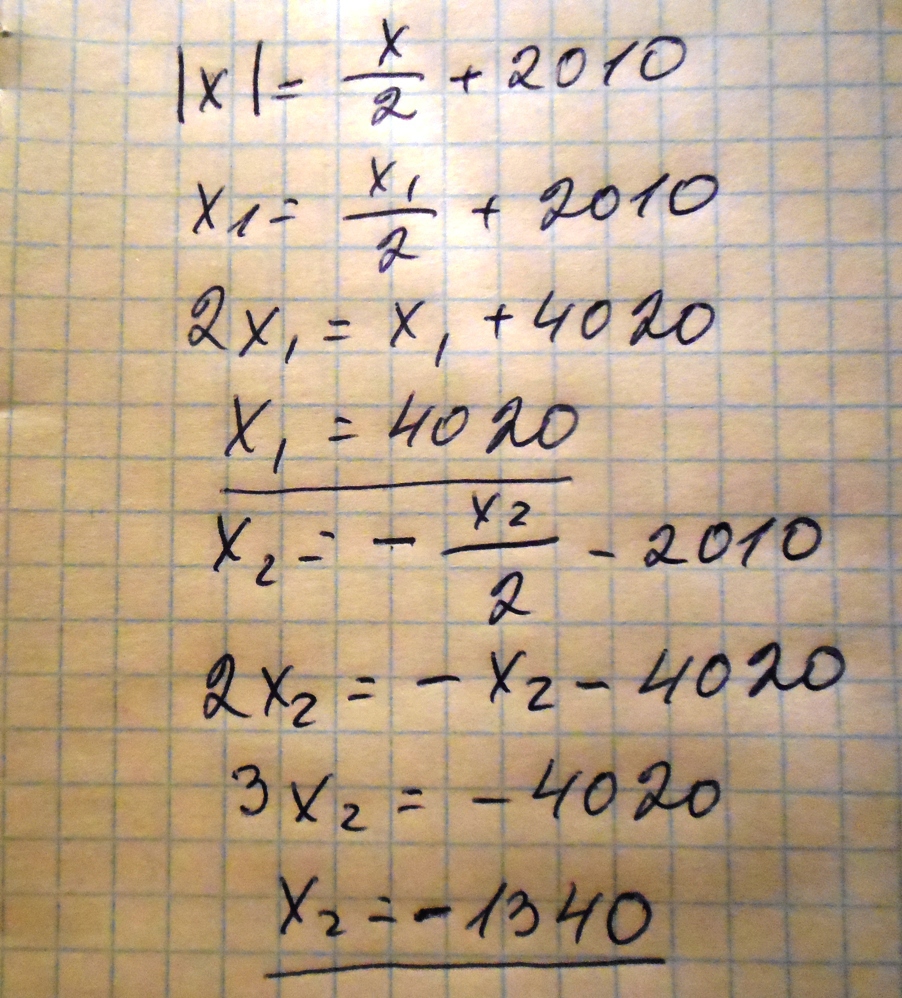 |x| = x/2 + 2010
x₁ = x₁/2 + 2010
2x₁ = x₁ + 4020
x₁ = 4020
x₂ = - x₂/2 - 2010
2x₂ = - x₂ - 4020
3x₂ = - 4020
x₂ = - 1340